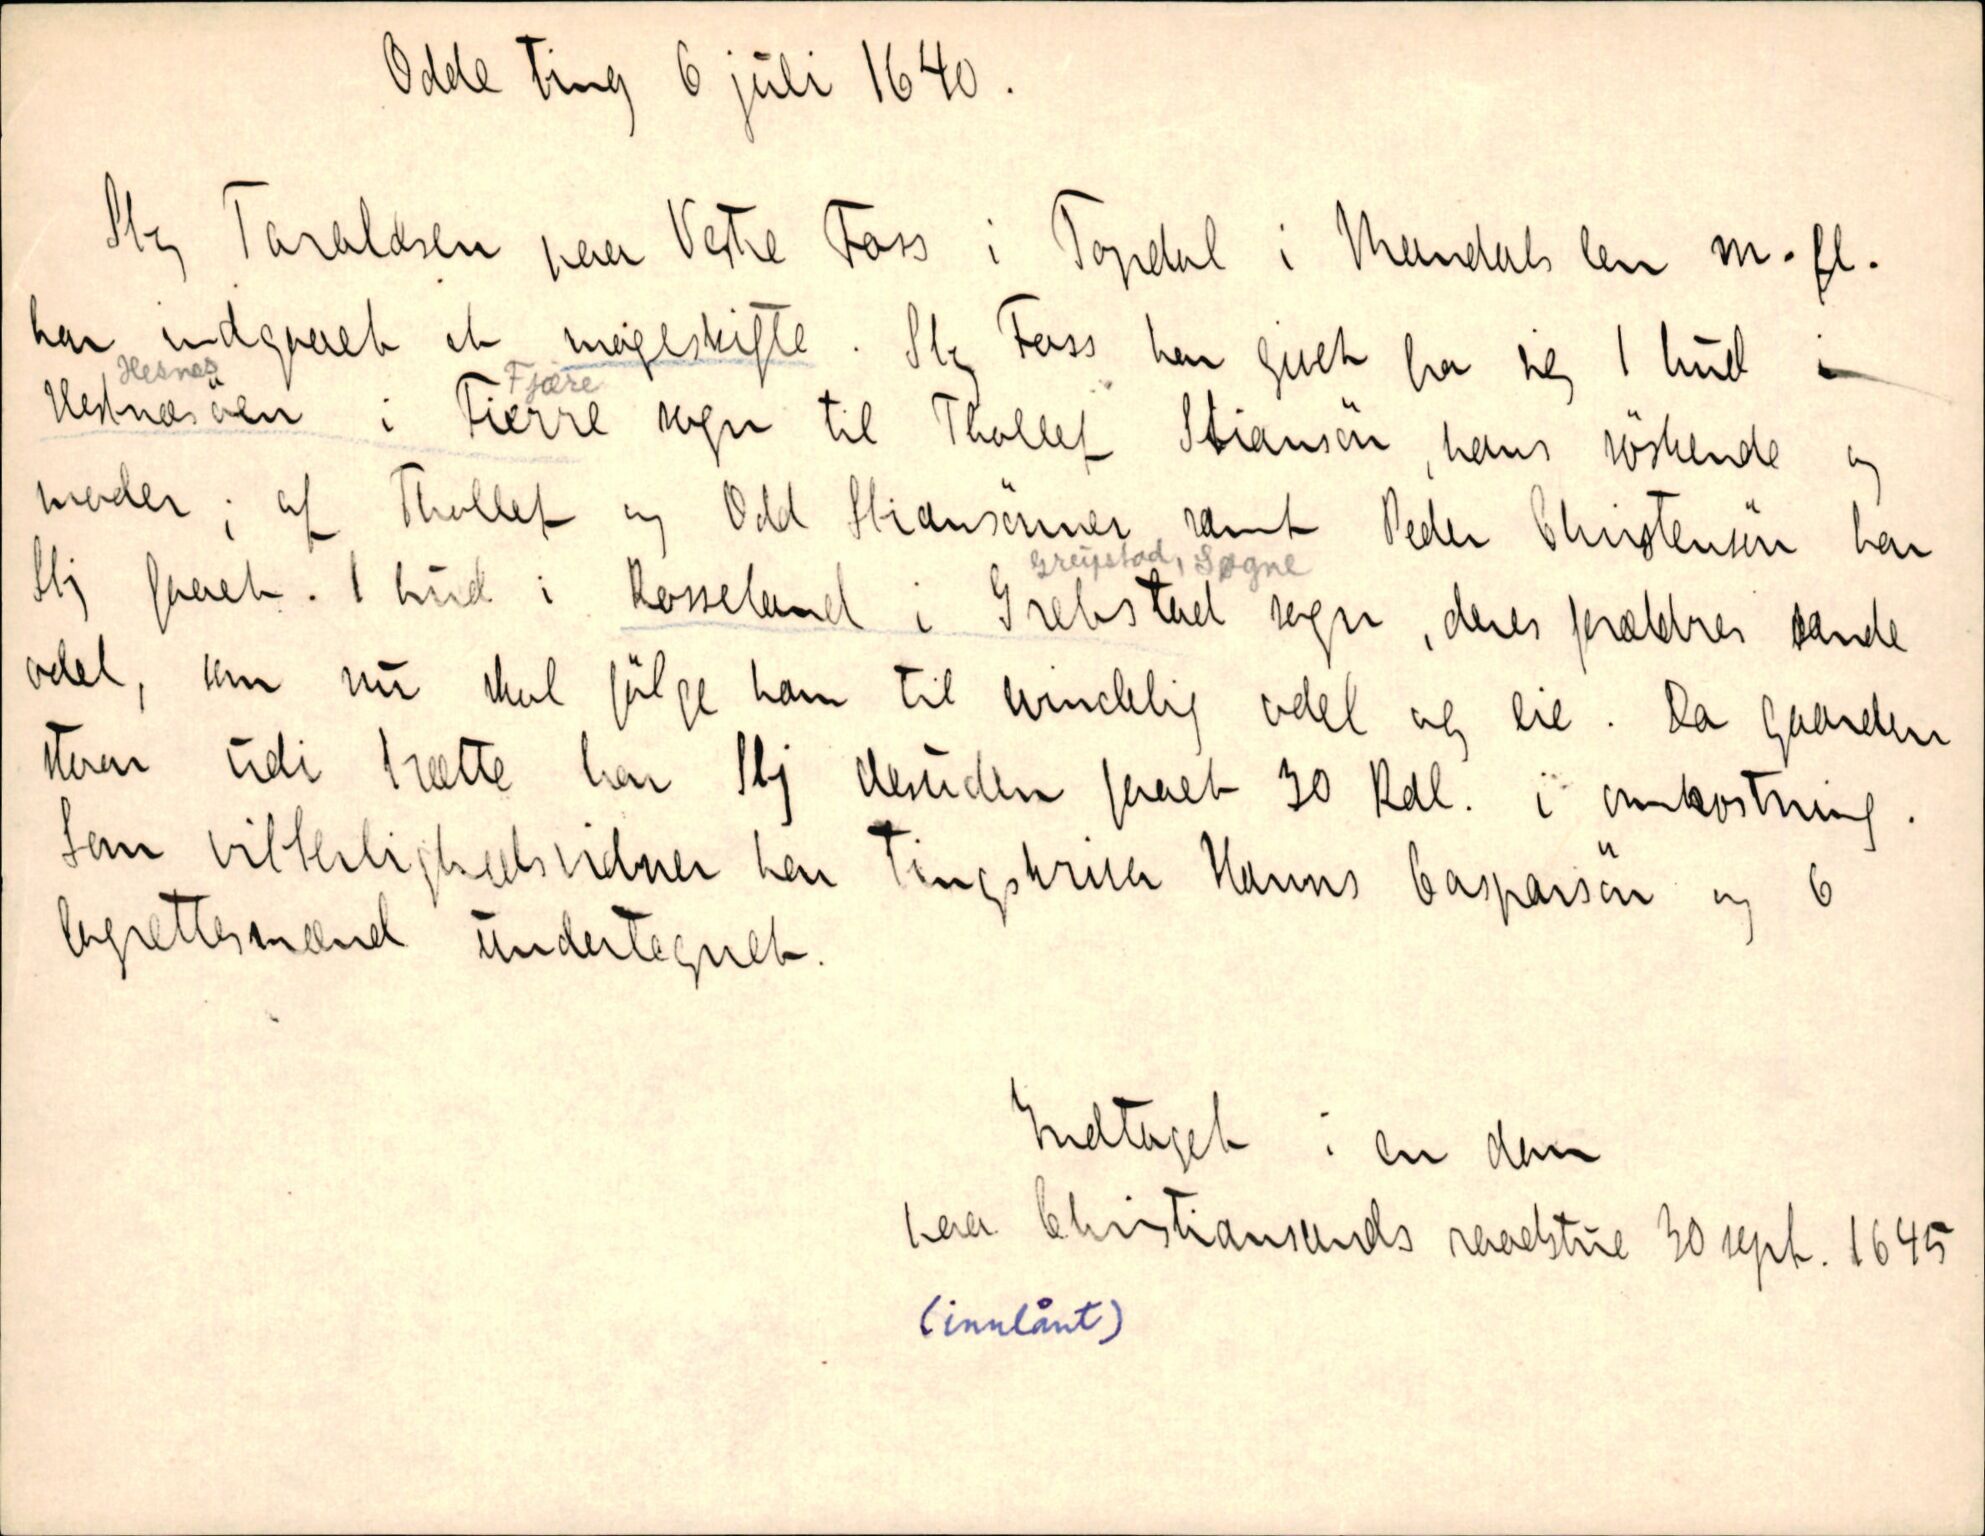 Odde ting 6 juli 1640.
Stig Taraldsen paa Vestre Foss i Topdal i Mandals len m. fl.
har indgaaet et mageskifte. Stig Foss har givet fra sig 1 hud i
Hesnes Fjære
Hesnæsöen i Fierre sogn til Thollef Stiansön, hans söskende og
moder; af Thollef og Odd Stiansönner samt Peder Christensön har
Greipstad, Søgne
Stig faaet 1 hud i Rosseland i Grebstad sogn, deres forældres sande
odel, som nu skal fölge ham til uvindelig odel og eie. Da gaarden
staar udi trætte har Stig desuden faaet 30 Rdl. i omkostning.
Som vitterlighedsvidner har tingskriver Hanns Casparsön og 6
lagrettesmænd undertegnet.
Indtaget i en dom
paa Christiansands raadstue 30 sept. 1645
(innlånt)